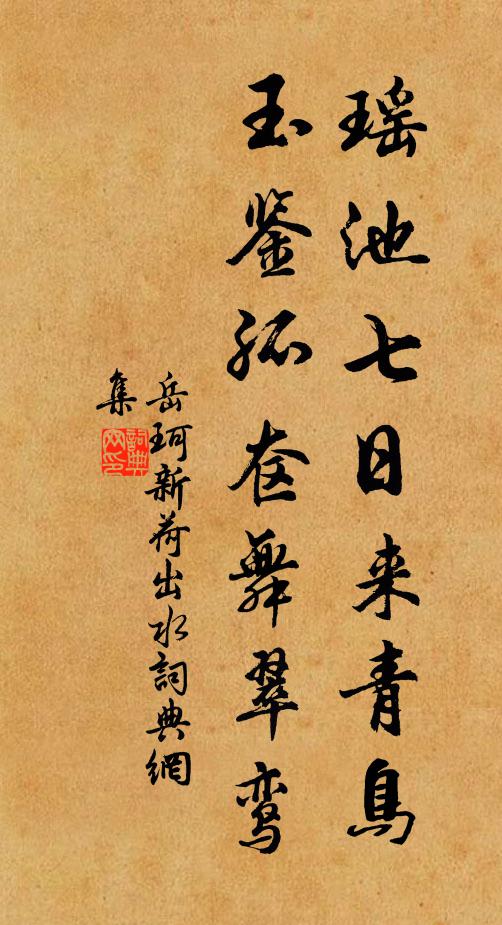 瑶池七日来青鸟
玉鉴孤奁舞翠鸾
岳珂新荷出水詞典網
集
詞典
网印